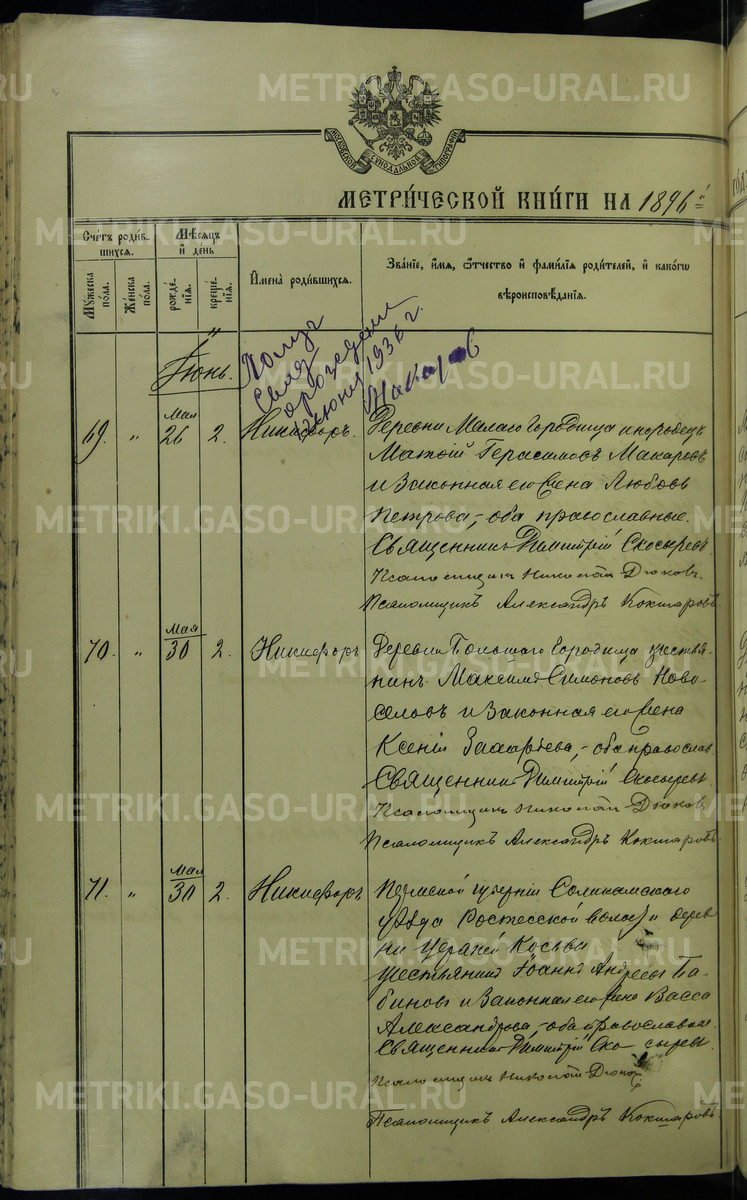 МОСКОВСКОЙ СѴНОДАЛЬНОЙ ТИПОГРАФІИ
МЕТРИ́ЧЕСКОЙ КНИ́ГИ НА 1896
Сче́тъ роди́вшихся.
Мѣ́сяцъ и҆ де́нь
Мꙋ́жеска по́ла.
Же́нска по́ла.
рожде́нїѧ.
креще́нїѧ.
И҆мена̀ роди́вшихсѧ.
Зва́нїе, и҆́мѧ, ѻ҆́тчество и҆ фами́лїѧ роди́телей, и҆ како́гѡ вѣроисповѣ́данїѧ.
Іюнь.
июня 1936 г.
Макаров
69. " Мая 26 2. Никифоръ. Деревни Малаго Городища инородецъ
Матѳій Герасимовъ Макаровъ
и законная его жена Любовь
Петрова,- оба православные.
Священникъ Димитрій Скосыревъ
Псаломщикъ Николай Дюковъ
Псаломщикъ Александръ Кокшаровъ
70. " Мая 30 2. Никифоръ Деревни Большаго Городища крестья-
нинъ Максимъ Симоновъ Ново-
селовъ и законная его жена
Ксенія Захарьева,- оба православ
Священникъ Димитрій Скосыревъ
Псаломщикъ Николай Дюковъ
Псаломщикъ Александръ Кокшаровъ
71. " Мая 30 2. Никифоръ Пермской губерніи Соликамскаго
уѣзда Ростесской волости дерев
ни Верхней Косьвы
крестьянинъ Іоаннъ Андреевъ Ба-
биновъ и законная его жена Васса
Александрова,- оба православные.
Священникъ Димитрій Скосыревъ
Псаломщикъ Николай Дюковъ
Псаломщикъ Александръ Кокшаровъ
METRIKI.GASO-URAL.RU